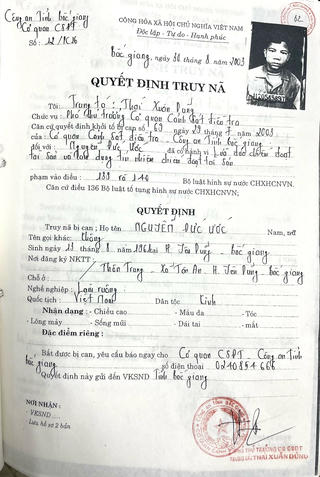 Công an Tỉnh bắc giang
Cơ quan CSĐT
Số : 12/TC16
CỘNG HÒA XÃ HỘI CHỦ NGHĨA VIỆT NAM
Độc lập - Tự do - Hạnh phúc
62
Bắc giang, ngày 30 tháng 8 năm 2003
QUYẾT ĐỊNH TRUY NÃ
Tôi: Trung tá : Thái Xuân Dũng
Chức vụ : Phó thủ trưởng Cơ quan Cảnh sát điều tra
Căn cứ quyết định khởi tố bị cap số 69 ngày 29 tháng 7 năm 2003
Cơ quan Cảnh sát điều tra - Công an Tỉnh bắc giang
đối với : Nguyễn Đức Ước đã có hành vi Lừa đảo chiếm đoạt
tài sản và lạm dụng tín nhiệm chiếm đoạt tài sản
phạm vào điều : 139 và 140 Bộ luật hình sự nước CHXHCNVN.
Căn cứ điều 136 Bộ luật tố tung hình sự nước CHXHCNVN;
QUYẾT ĐỊNH
Truy nã bị can ; Họ tên NGUYỄN ĐỨC ƯỚC Nam, nữ
Tên gọi khác:
Sinh ngày 19 tháng 1 năm H. Yên Dũng - Bắc giang
Nơi đăng ký NKTT :
Xã Tân An - H. Yên Dũng - Bắc giang
Chỗ ở :
Nghề nghiệp : Làm ruộng
Quốc tịch : Việt Nam Dân tộc Kinh
Nhận dạng : - Chiều cao - Màu da - Tóc
- Lông mày - Sống mũi - Dái tai - mắt
Đặc điểm riêng :
Bắt được bị can, yêu cầu báo ngay cho Cơ quan CSĐT - Công an Tỉnh
bắc giang số điện thoại 0240854666
Quyết định này gửi đến VKSND Tỉnh bắc giang
NƠI NHẬN :
- VKSND
- Lưu hồ sơ 2 bản
PHÓ THỦ TRƯỞNG CQ CSĐT
TRUNG TÁ THÁI XUÂN DŨNG